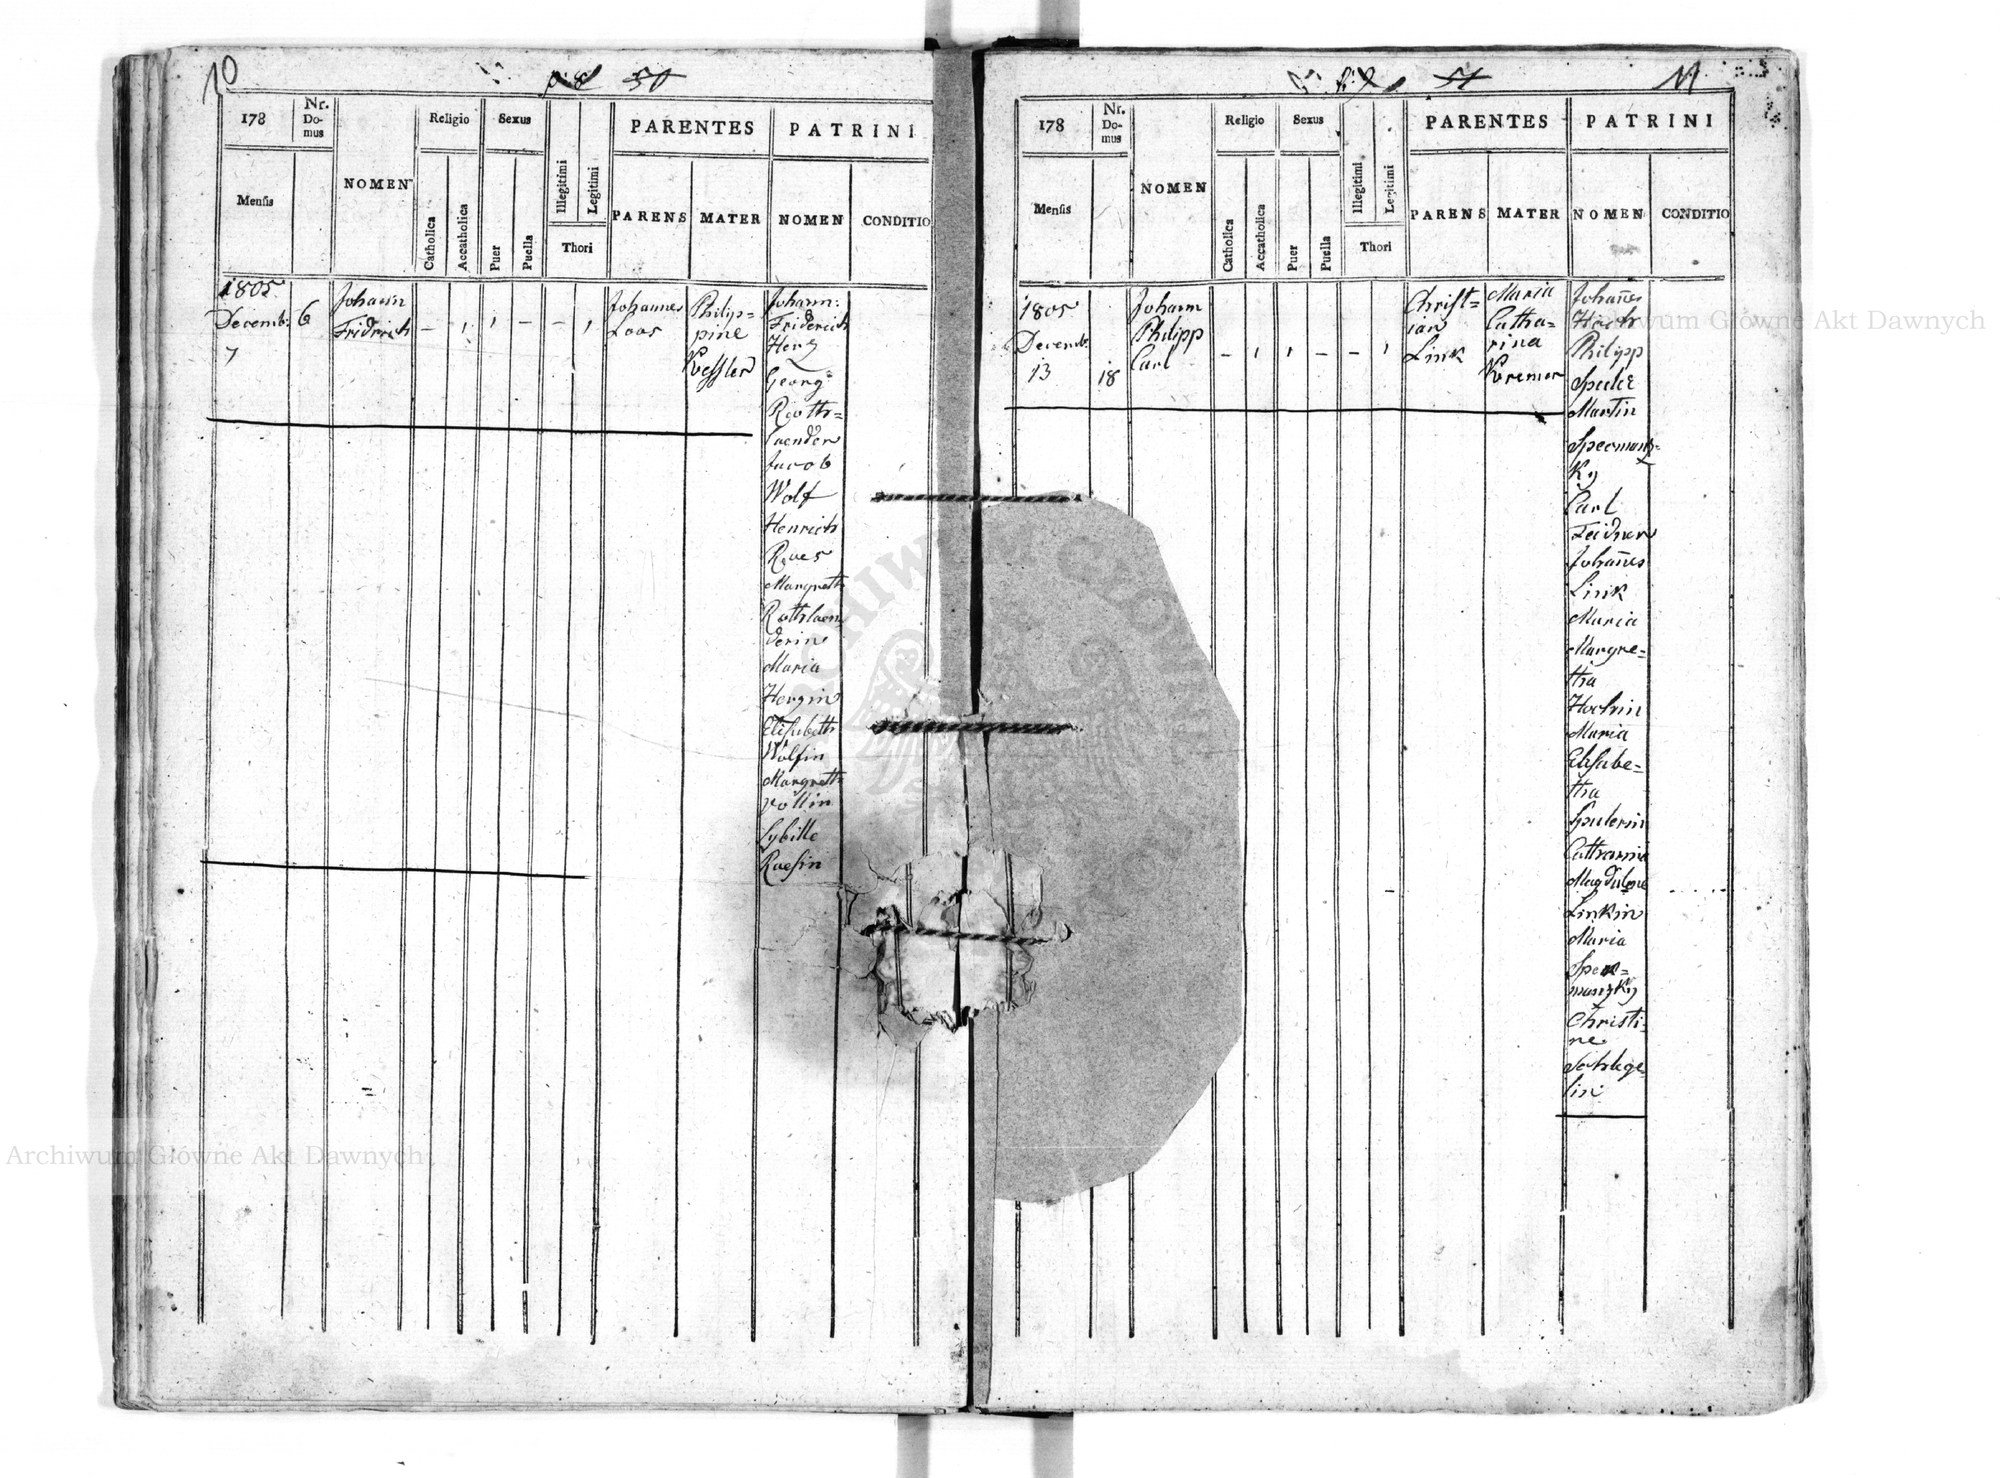 10
50
178
Nr.
Do-
mus
Mensis
NOMEN
Religio
Catholica
Accatholica
Sexus
Puer
Puella
Illegitimi
Legitimi
Thori
PARENTES
PARENS
MATER
PATRINI
NOMEN
CONDITIO
1805
Decemb:
7
6
Johann
Fridrich
Johannes
Loos
Philip=
pine
Kessler
Johann:
Friderich
Herz
Georg
Roth=
laender
Jacob
Wolf
Henrich
Raes
Margreth
Rothlaen
derin
Maria
Herzin
Elisabeth
Wolfin
Margreth
Vollin
Sybille
Raesin
51
11
178
Nr.
Do-
mus
Mensis
NOMEN
Religio
Catholica
Accatholica
Sexus
Puer
Puella
Illegitimi
Legitimi
Thori
PARENTES
PARENS
MATER
PATRINI
NOMEN
CONDITIO
1805
Decemb.
13
18
Johann
Philipp
Carl
Christ=
ian
Link
Maria
Catha=
rina
Kremer
Johañes
Hoch
Philipp
Martin
Ky
Carl
Feidner
Johañes
Link
Maria
Margre=
tha
Hochin
Maria
Elisabe=
tha
Catharina
Magdalene
Linkin
Maria
Christi-
ne
Schlege=
lin
Archiwum Główne Akt Dawnych
Archiwum Główne Akt Dawnych